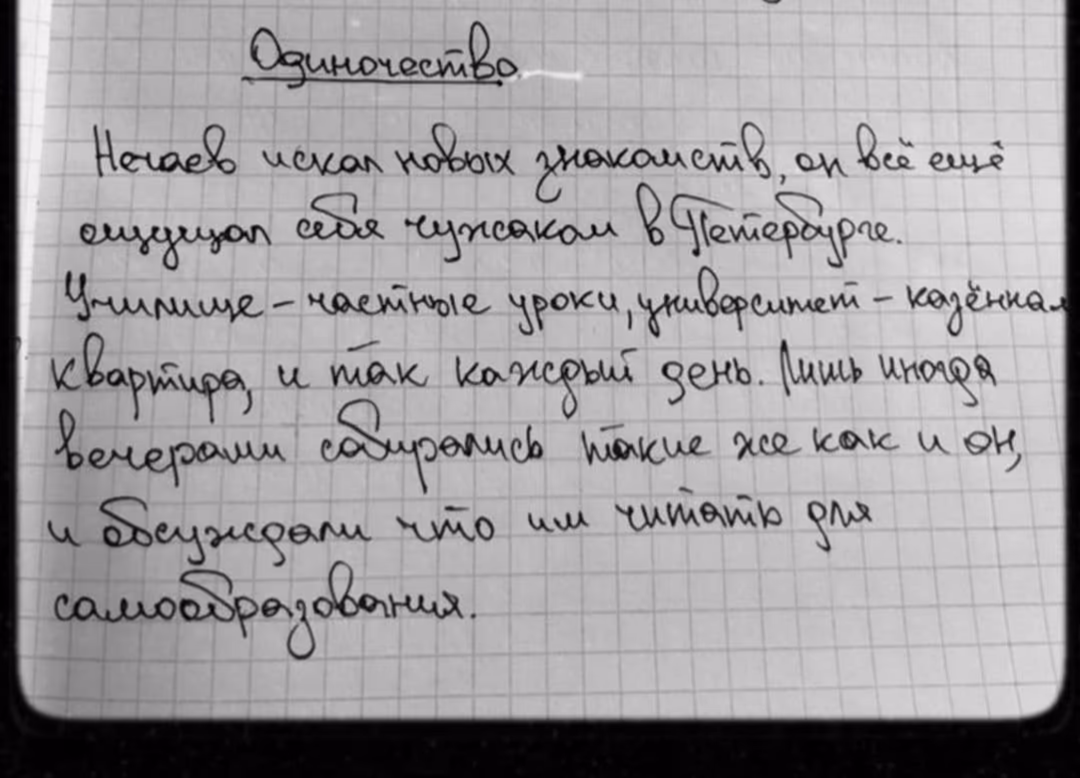 Одиночество
Нечаев искал новых знакомств, он всё ещё
ощущал себя чужаком в Петербурге.
Училище – частные уроки, университет – казённая
квартира, и так каждый день. Лишь иногда
вечерами собирались такие же как и он,
и обсуждали что им читать для
самообразования.